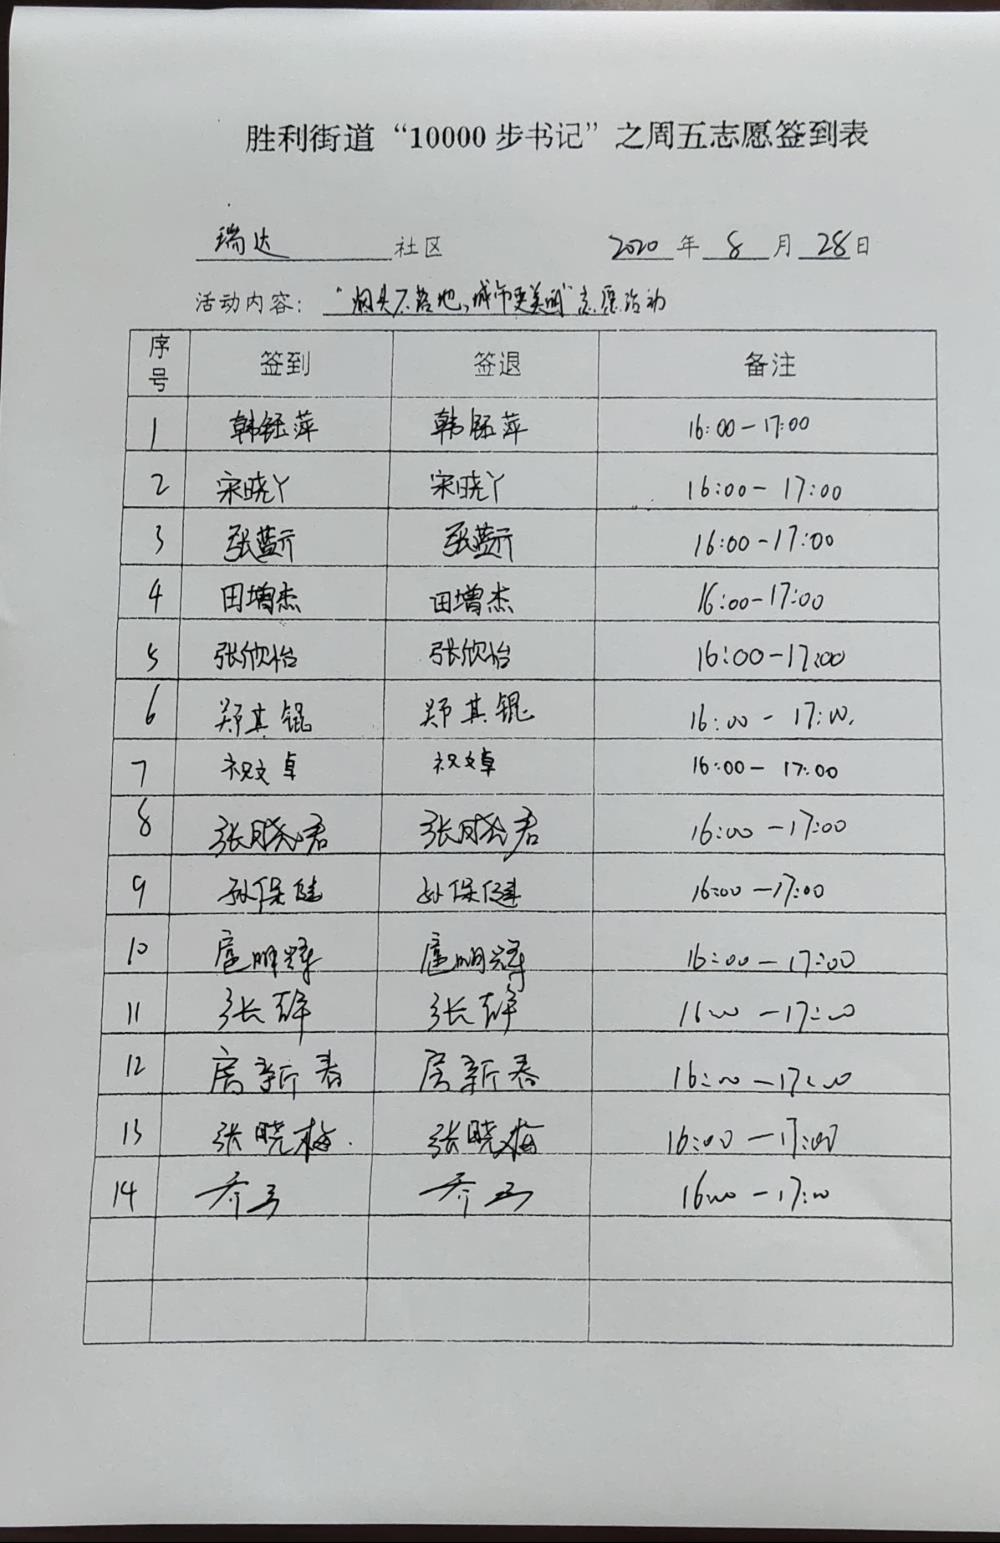 胜利街道“10000步书记”之周五志愿签到表
瑞达 社区 2020年8月28日
活动内容：“烟头不落地，城市更美丽”志愿活动
序号 签到 签退 备注
1 韩钰萍 韩钰萍 16:00-17:00
2 宋晓丫 宋晓丫 16:00-17:00
3 张蓝亓 张蓝亓 16:00-17:00
4 田增杰 田增杰 16:00-17:00
5 张欣怡 张欣怡 16:00-17:00
6 郑其锟 郑其锟 16:00-17:00.
7 祝文卓 祝文卓 16:00-17:00
8 张晓君 张晓君 16:00-17:00
9 孙保健 孙保健 16:00-17:00
10 扈明辉 扈明辉 16:00-17:00
11 张 张 16:00-17:00
12 房新春 房新春 16:00-17:00
13 张晓梅. 张晓梅 16:00-17:00
14 乔 乔 16:00-17:00